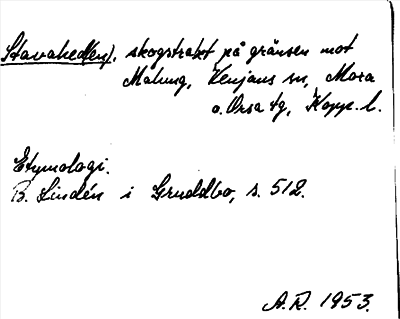 Stavaheden), skogstrakt på gränsen mot
Malung, Venjans sn, Mora
o. Orsa tg, Kopp. l.
Etymologi.
B. Lindén i Gruddbo, s. 512.
A.R. 1953.